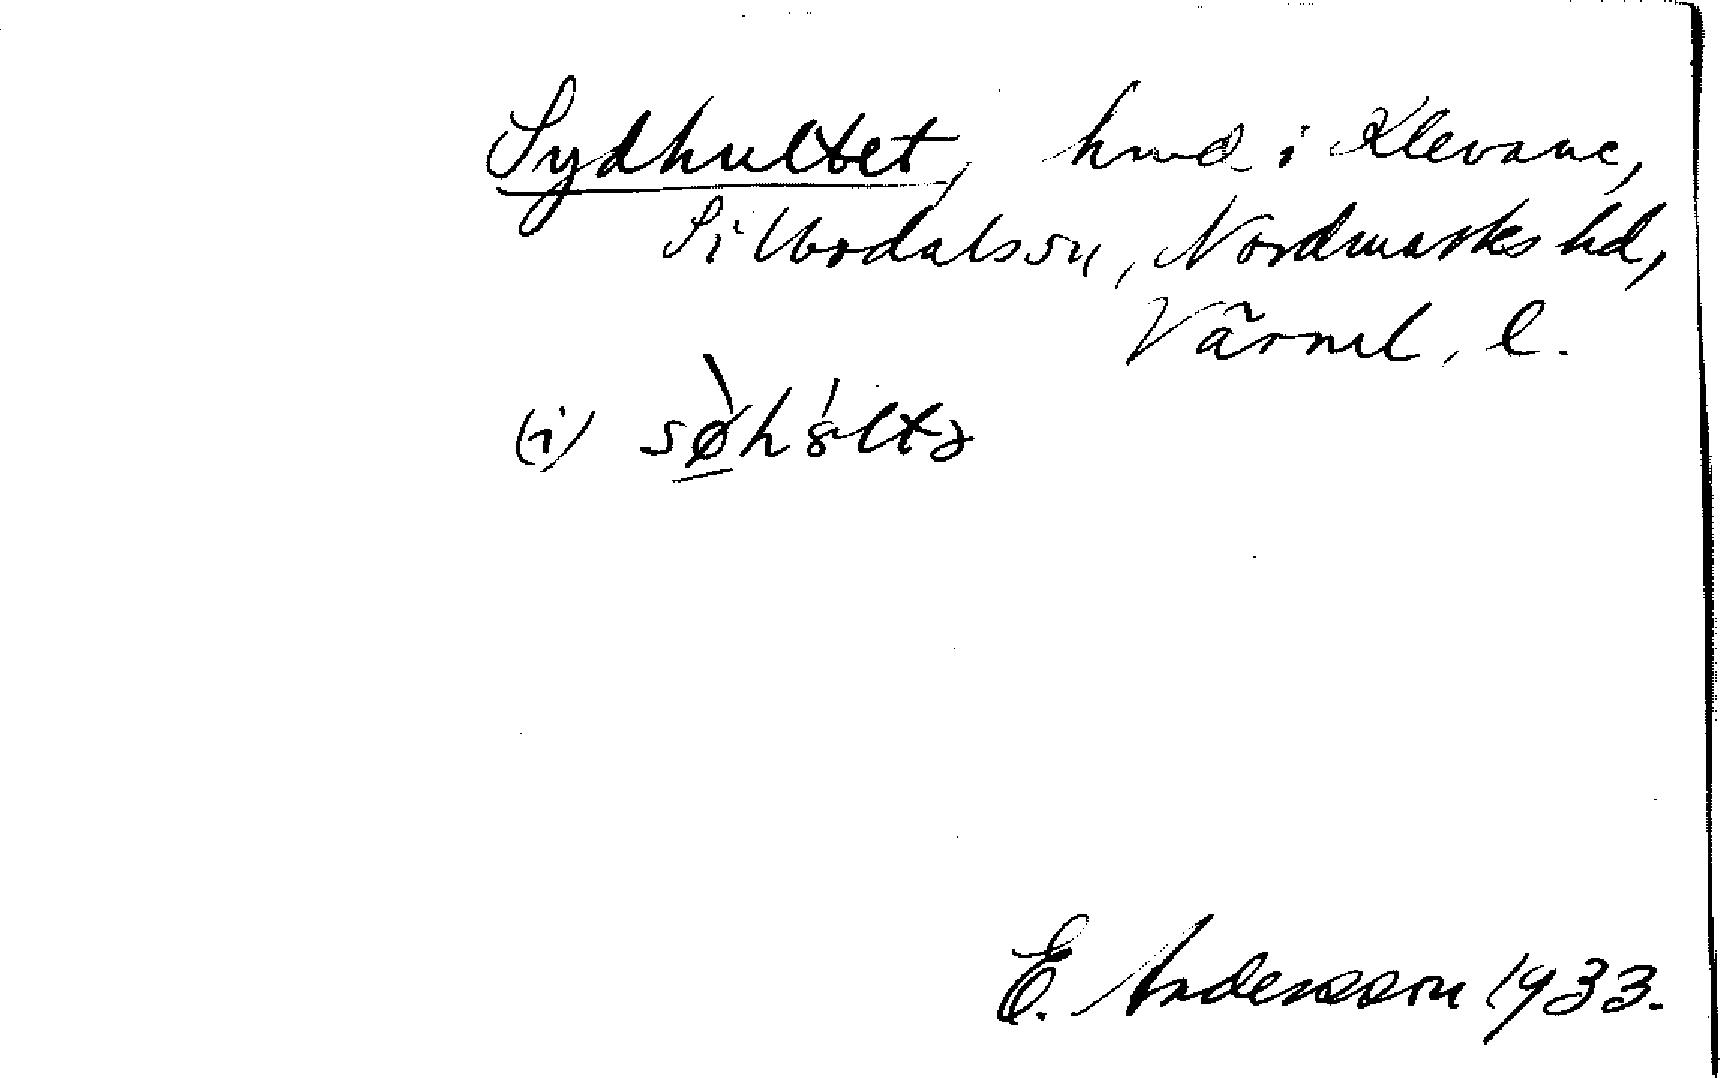 Sydhultet, hmd i Klevane,
Silbodals sn, Nordmarks hd,
Värml. l.
(i)
E. Andersson 1933.